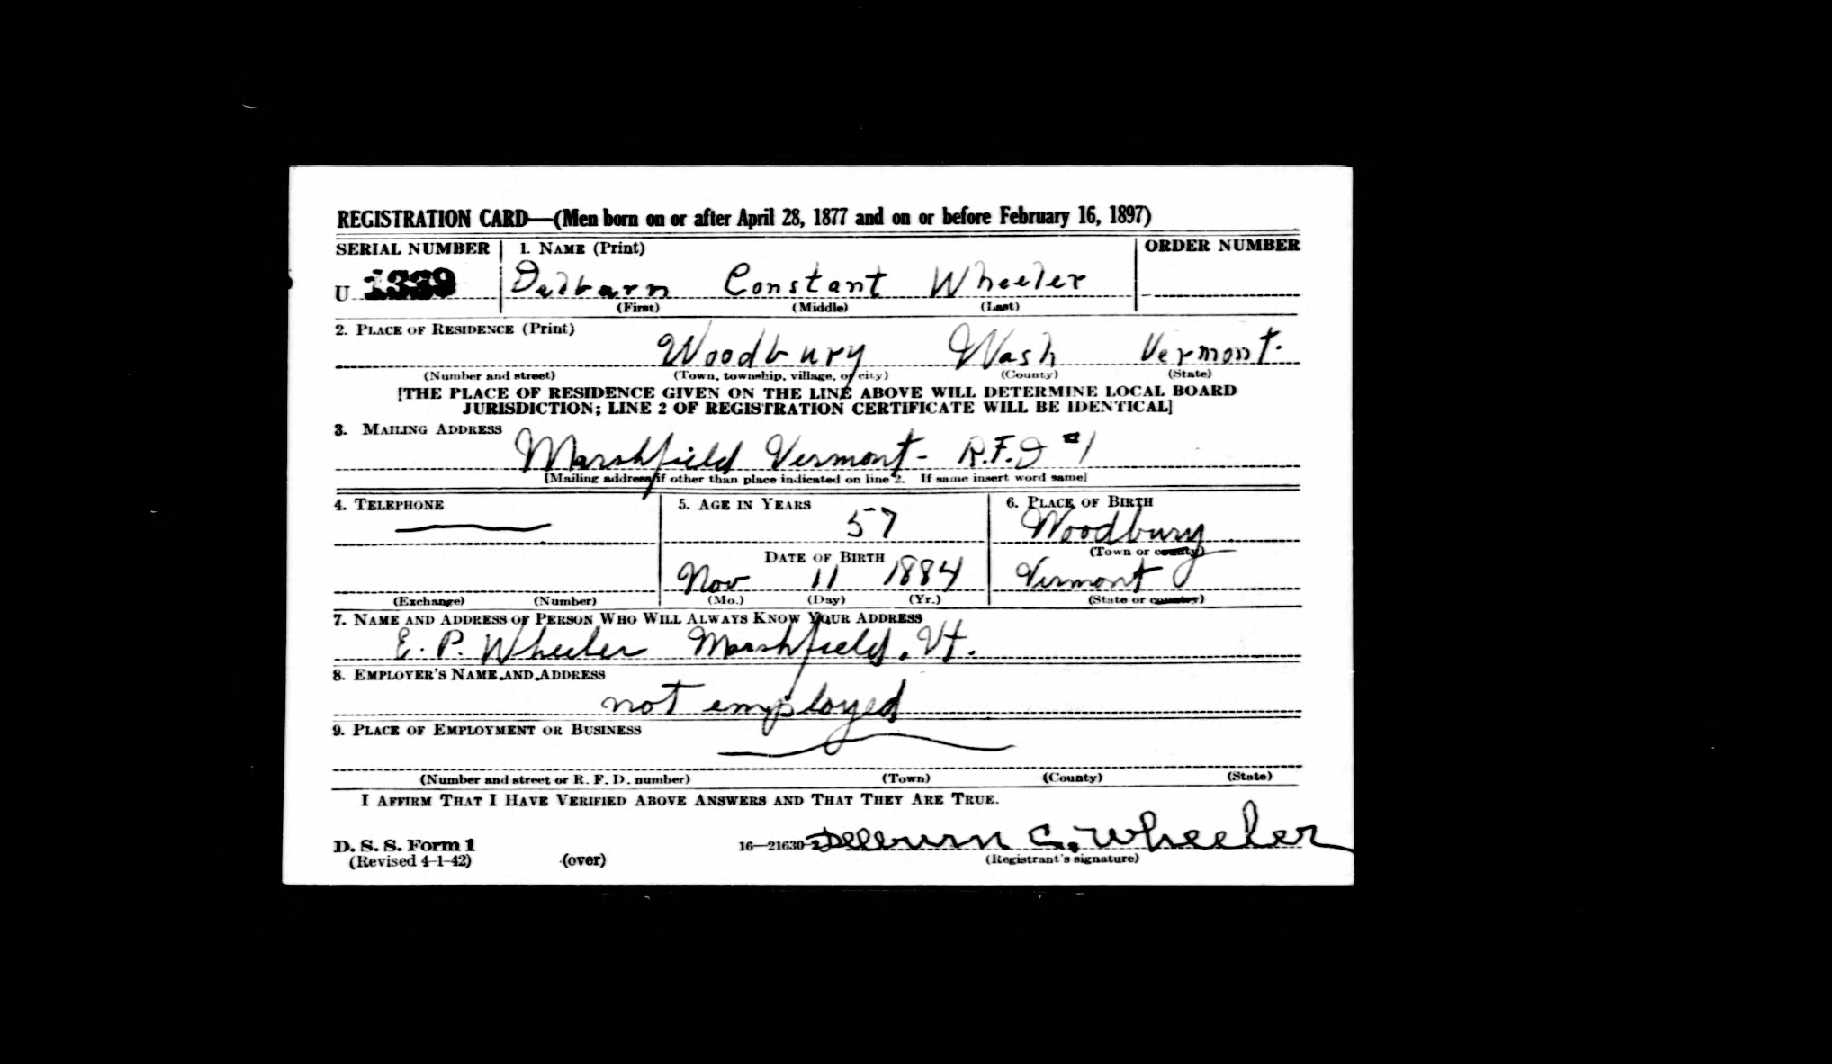 REGISTRATION CARD—(Men born on or after April 28, 1877 and on or before February 16, 1897)
SERIAL NUMBER 1. NAME (Print) ORDER NUMBER
U 1339 Constant Wheeler
(First) (Middle) (Last)
2. PLACE OF RESIDENCE (Print)
Woodbury Wash Vermont
(Number and street) (Town, township, village, or city) (County) (State)
[THE PLACE OF RESIDENCE GIVEN ON THE LINE ABOVE WILL DETERMINE LOCAL BOARD
JURISDICTION; LINE 2 OF REGISTRATION CERTIFICATE WILL BE IDENTICAL]
3. MAILING ADDRESS
Marshfield Vermont- R.F.D #1
[Mailing address if other than place indicated on line 2. If same insert word same]
4. TELEPHONE 5. AGE IN YEARS 6. PLACE OF BIRTH
57 Woodbury
(Town or county)
DATE OF BIRTH
Nov 11 1884 Vermont
(Exchange) (Number) (Mo.) (Day) (Yr.) (State or country)
7. NAME AND ADDRESS OF PERSON WHO WILL ALWAYS KNOW YOUR ADDRESS
E. P. Wheeler Marshfield, Vt.
8. EMPLOYER'S NAME AND ADDRESS
not employed
9. PLACE OF EMPLOYMENT OR BUSINESS
(Number and street or R. F. D. number) (Town) (County) (State)
I AFFIRM THAT I HAVE VERIFIED ABOVE ANSWERS AND THAT THEY ARE TRUE.
D. S. S. Form 1 16—21630-2 C. Wheeler
(Revised 4-1-42) (over) (Registrant's signature)